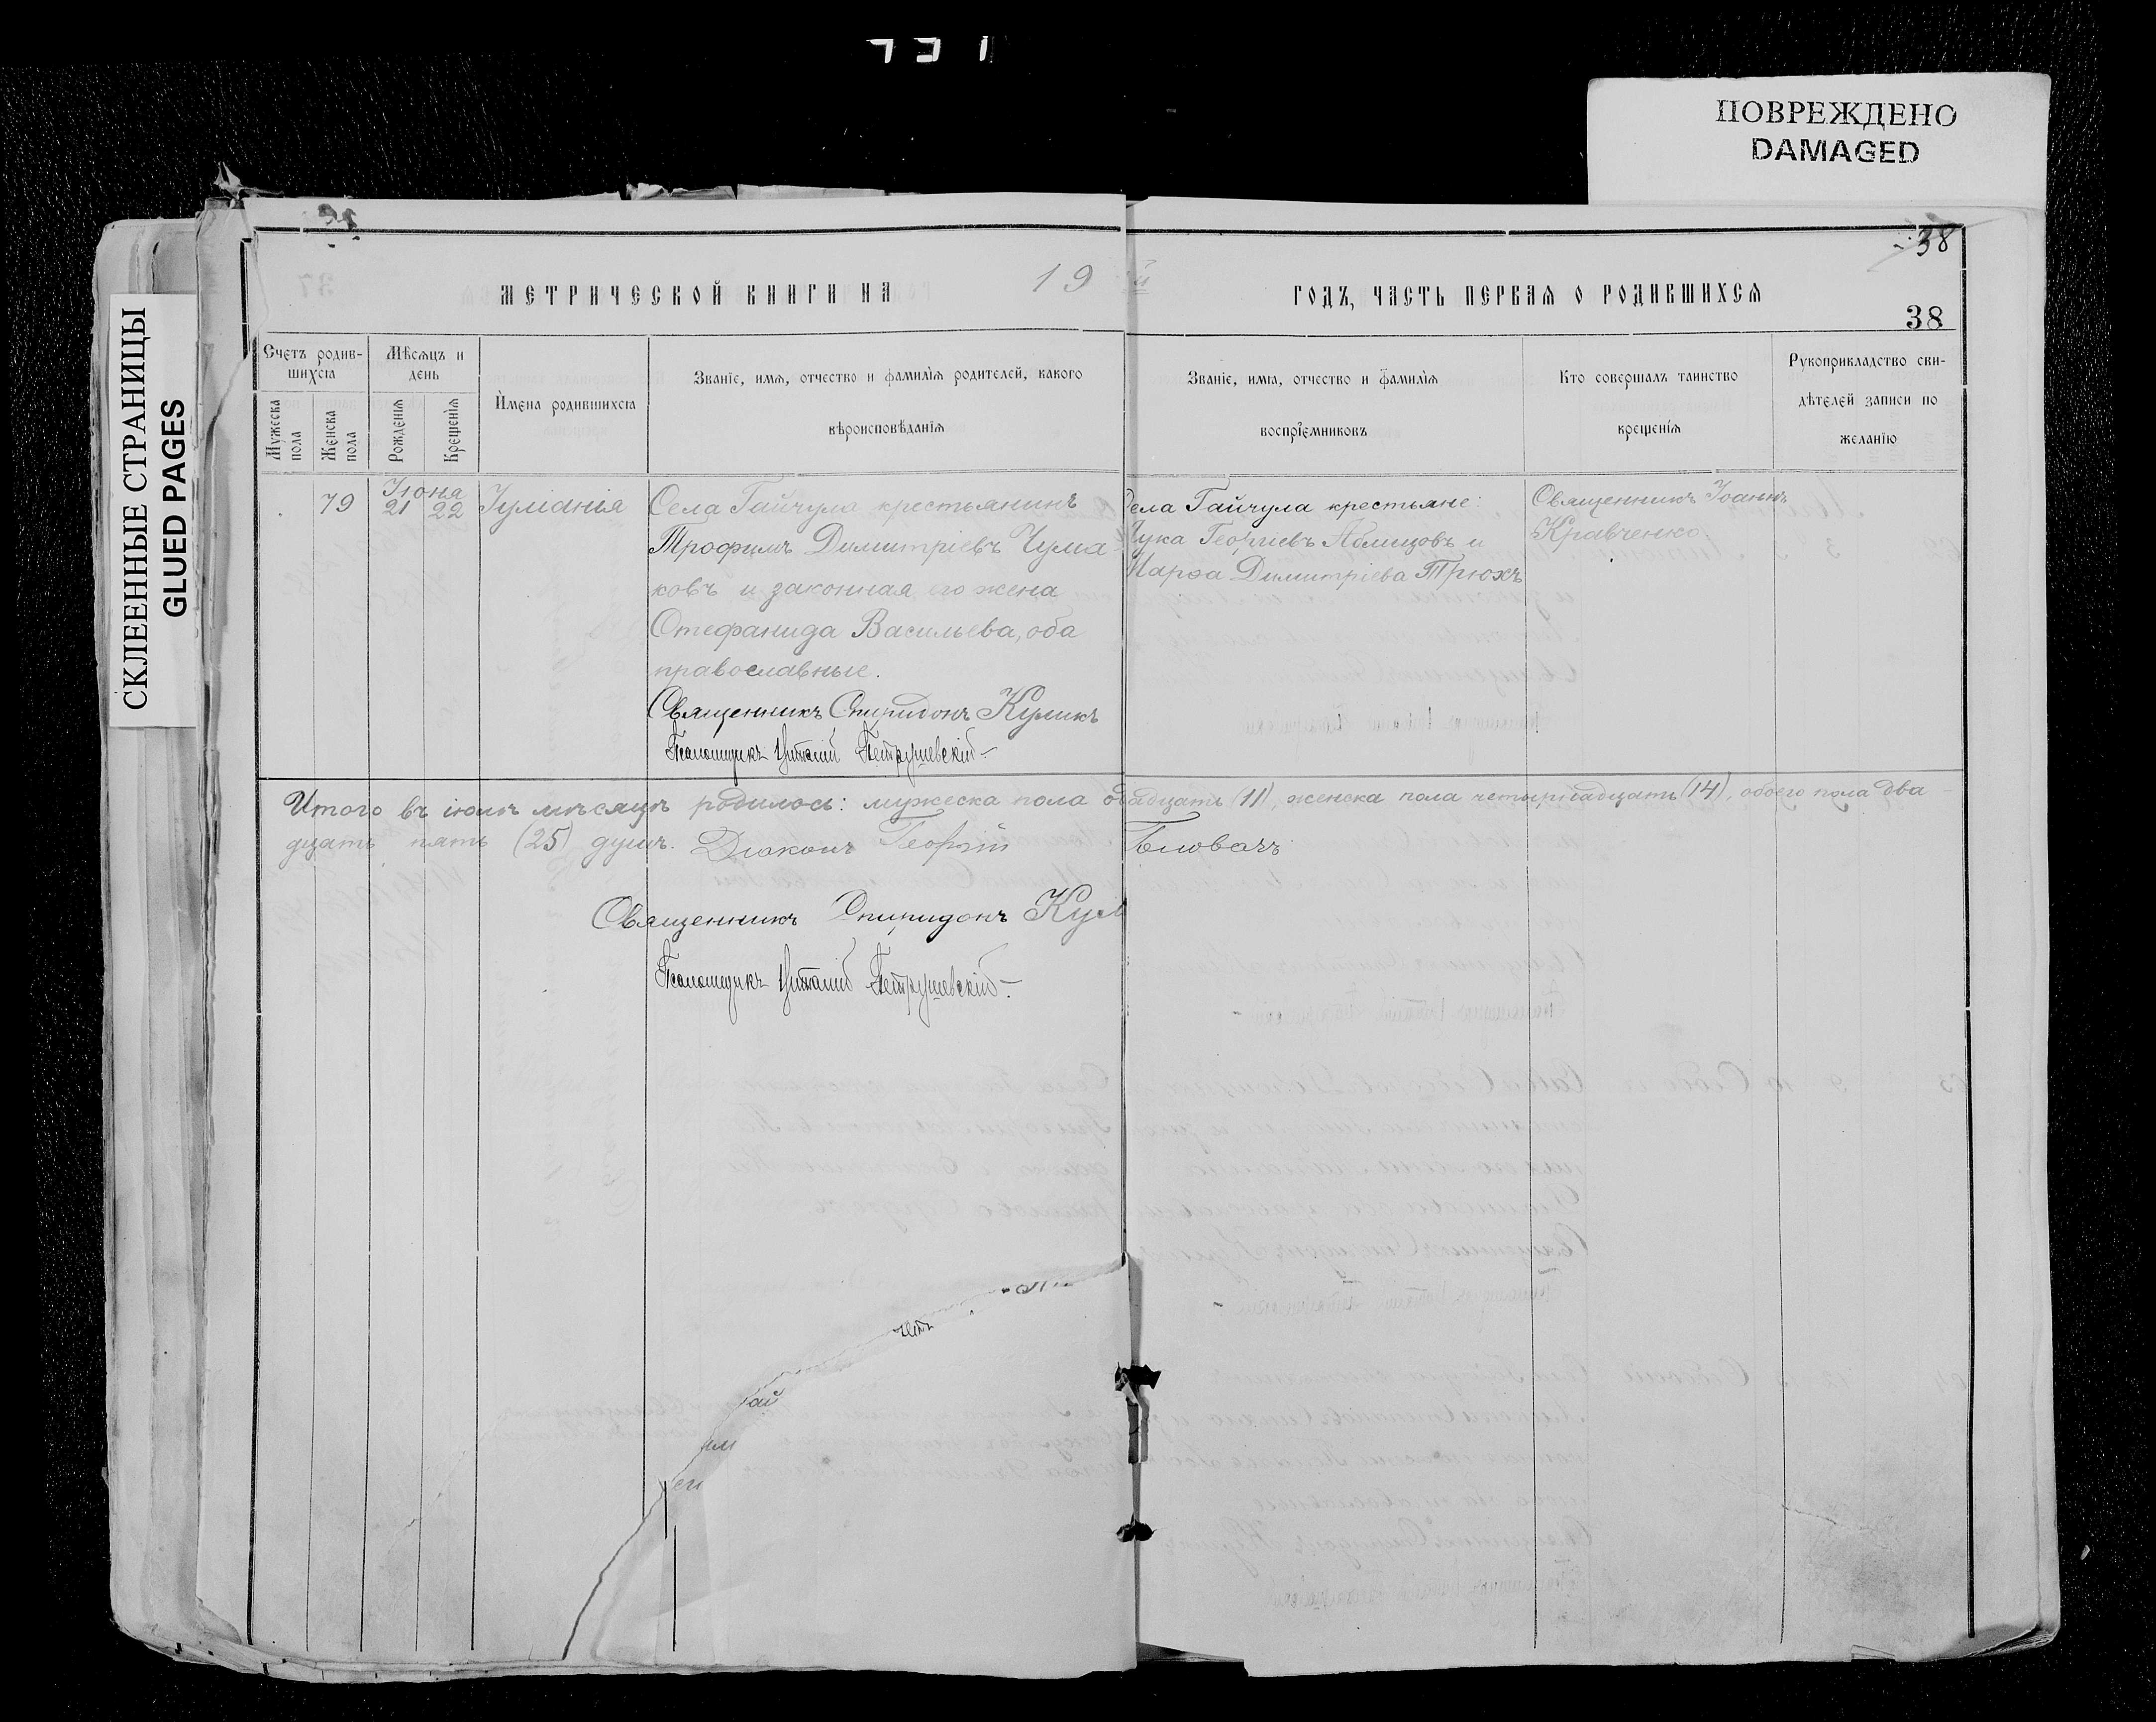 ПОВРЕЖДЕНО
DAMAGED
СКЛЕЕННЫЕ СТРАНИЦЫ
GLUED PAGES
38
МЕТРИЧЕСКОЙ КНИГИ НА 19
ГОДЪ, ЧАСТЬ ПЕРВАЯ О РОДИВШИХСЯ
38
Счетъ родив-
шихся
Мужеска
пола
Женска
пола
Мѣсяцъ и
день
Рожденія
Крещенія
Имена родившихся
Званіе, имя, отчество и фамилія родителей, какого
вѣроисповѣданія
Званіе, имя, отчество и фамилія
воспріемниковъ
Кто совершалъ таинство
крещенія
Рукоприкладство сви-
дѣтелей записи по
желанію
79
Іюня
21 22
Іуліанія
Села Гайчула крестьянинъ
Трофимъ Димитріевъ Чума-
ковъ и законная его жена
Стефанида Васильева, оба
православные.
Священникъ Спиридонъ Куликъ
Псаломщикъ Виталій Петрушевскій
Села Гайчула крестьяне:
Лука Георгіевъ и
Марѳа Димитріева Трюхъ
Священникъ Іоаннъ
Кравченко
Итого въ мѣсяцѣ родилось: мужеска пола (11), женска пола четырнадцать (14), обоего пола два-
дцать пять (25) душъ. Діаконъ Георгій
Священникъ Спиридонъ Кул
Псаломщикъ Виталій Петрушевскій